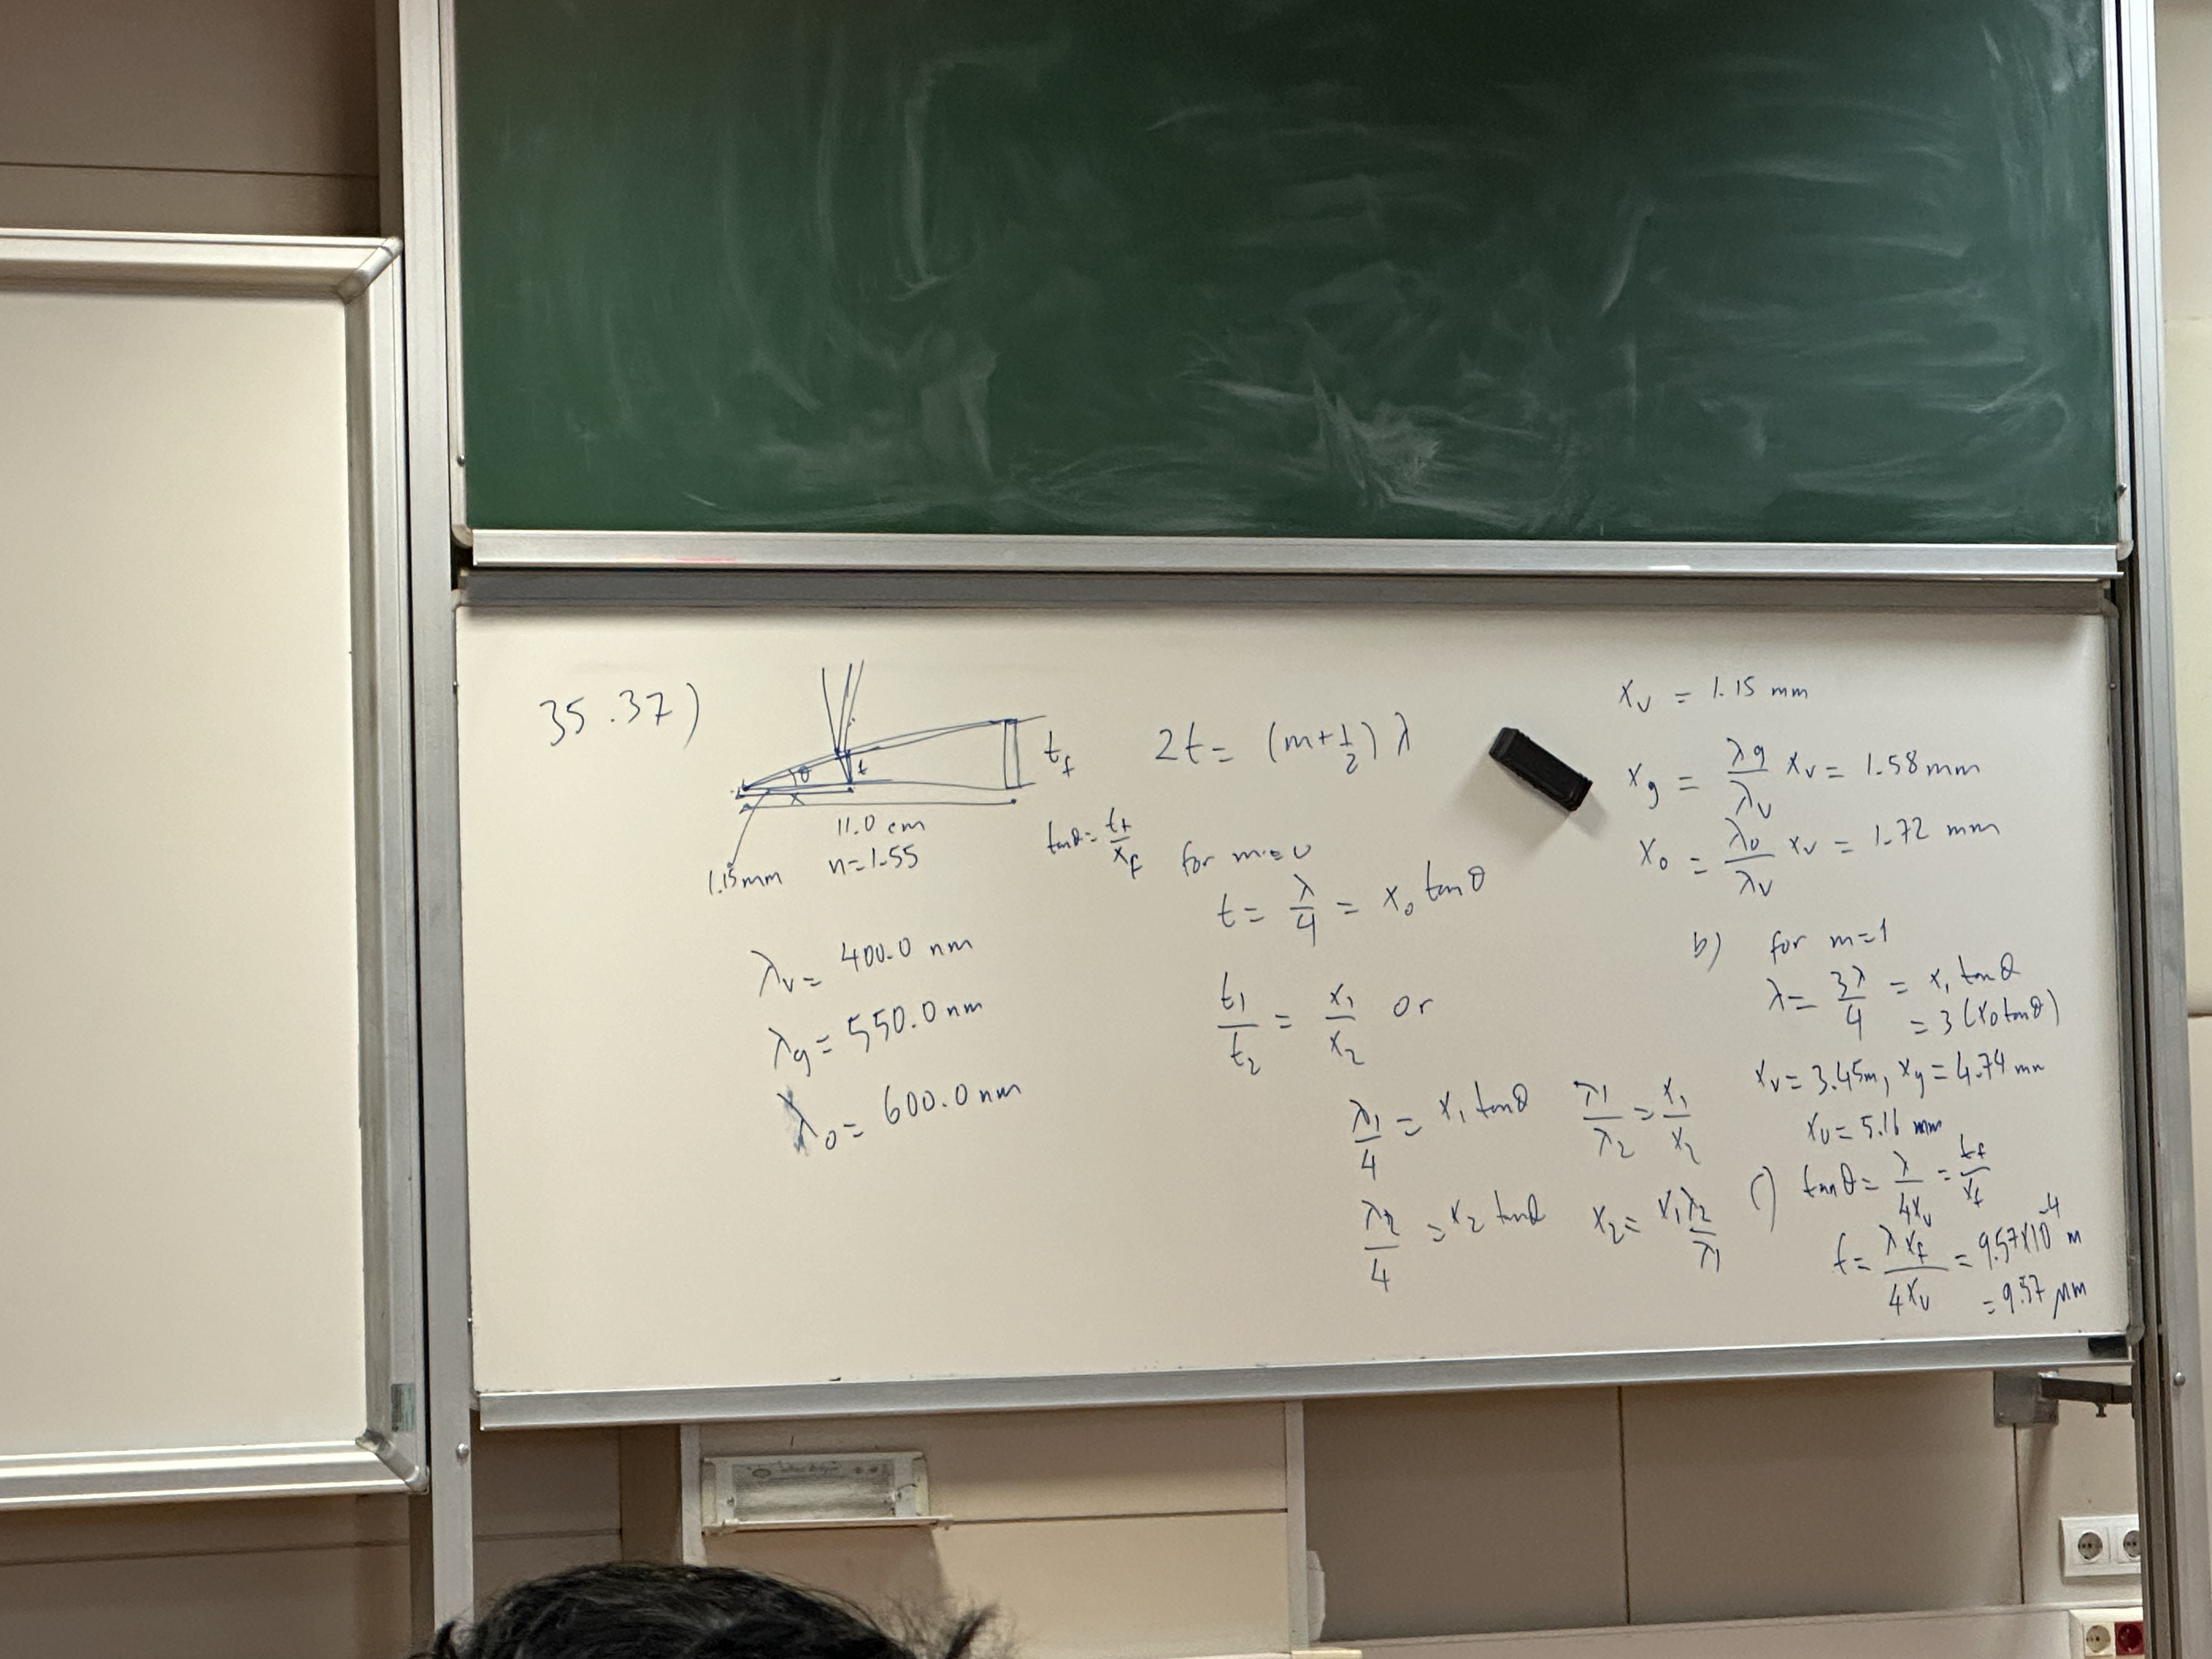 35.37)
θ
t
x
t_f
11.0 cm
n=1.55
1.15mm
λ_v = 400.0 nm
λ_g = 550.0 nm
λ_0 = 600.0 nm
2t = (m+1/2) λ
tanθ = t_f/x_f
for m=0
t = λ/4 = x_0 tanθ
t_1/t_2 = x_1/x_2 or
λ_1/4 = x_1 tanθ λ_1/λ_2 = x_1/x_2
λ_2/4 = x_2 tanθ x_2 = x_1 λ_2/λ_1
x_v = 1.15 mm
x_g = λ_g/λ_v x_v = 1.58 mm
x_0 = λ_0/λ_v x_v = 1.72 mm
b) for m=1
λ = 3λ/4 = x_1 tanθ
= 3(x_0 tanθ)
x_v = 3.45m, x_g = 4.74 mm
x_0 = 5.16 mm
c) tanθ = λ/4x_v = t_f/x_f
t = λx_f/4x_v = 9.57x10^-4 m
= 9.57 μm